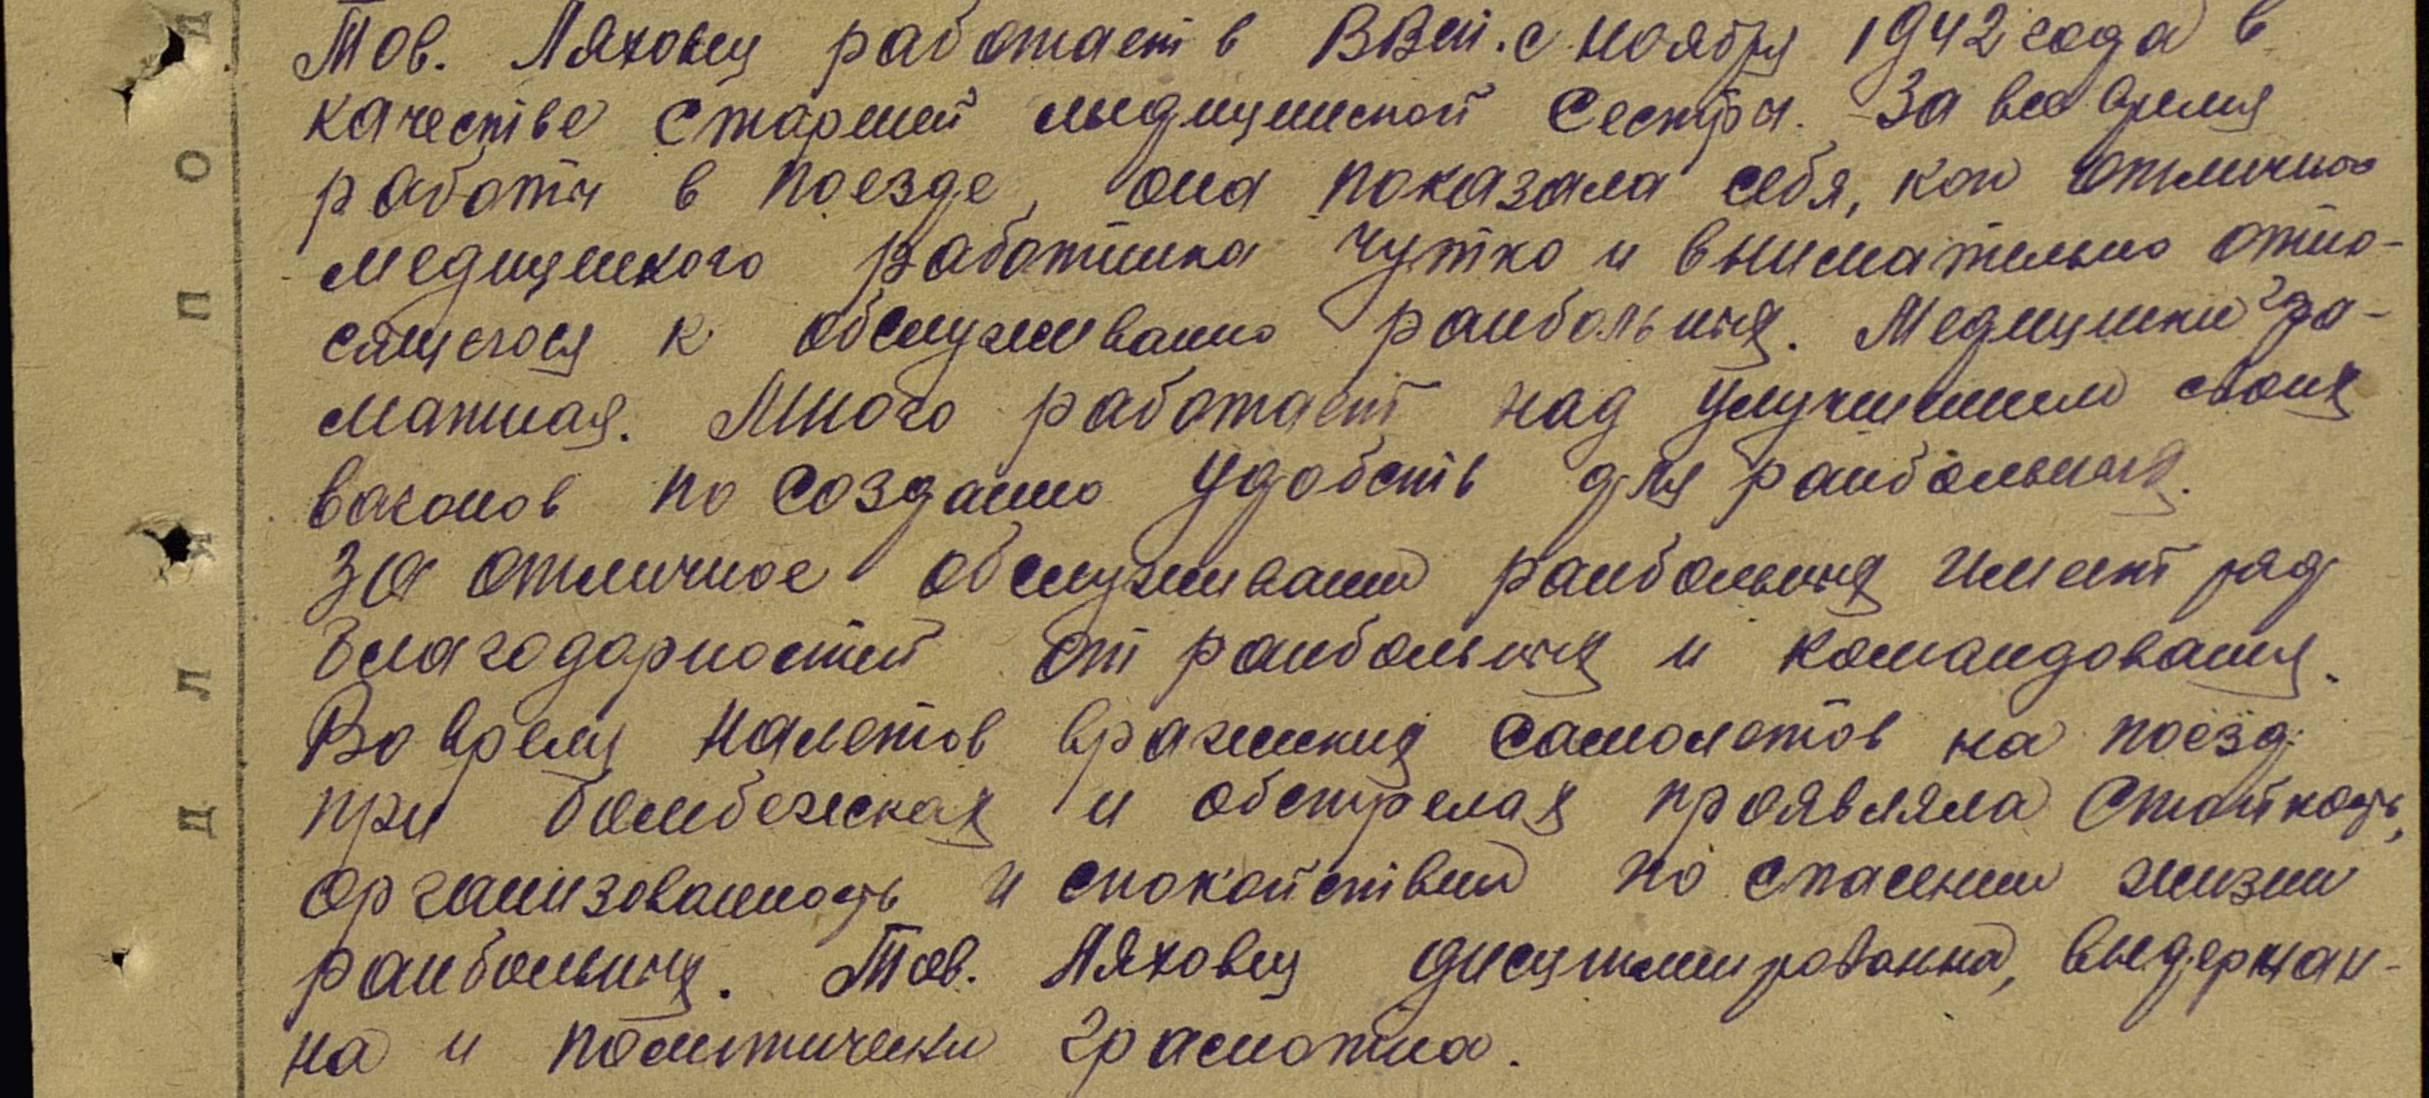 Тов. Ляховец работает в ВВСП. с ноября 1942 года в
качестве старшей медицинской сестры. За все время
работы в поезде, она показала себя, как отличного
медицинского работника чутко и внимательно отно-
сящегося к обслуживанию ранбольных. Медицински гра-
мотная. Много работает над улучшением своих
вагонов по созданию удобств для ранбольных.
За отличное обслуживание ранбольных имеет ряд
благодарностей от ранбольных и командования.
Во время налетов вражеских самолетов на поезд
при бомбежках и обстрелах проявляла стойкость,
организованность и спокойствие по спасению жизни
ранбольных. Тов. Ляховец дисциплинированна, выдержан-
на и политически грамотна.
Д Л Я П О Д